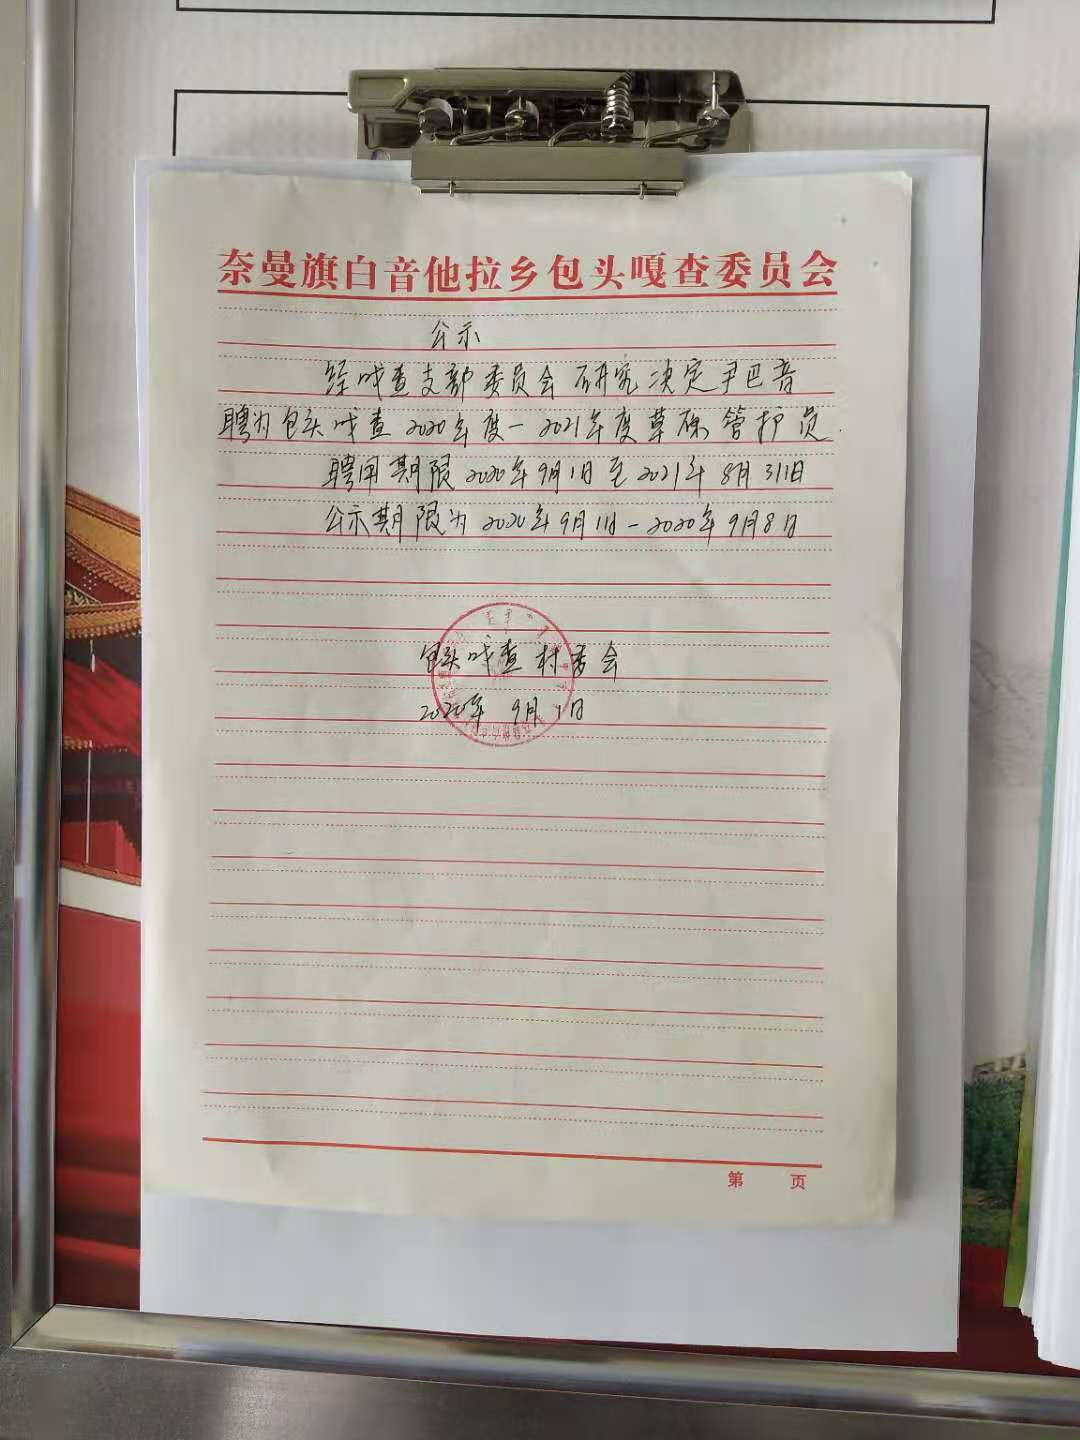 奈曼旗白音他拉乡包头嘎查委员会
公示
经嘎查支部委员会研究决定尹巴音
聘为包头嘎查2020年度—2021年度草原管护员.
聘用期限2020年9月1日至2021年8月31日
公示期限为2020年9月1日—2020年9月8日
包头嘎查村委会
2020年9月1日
第 页